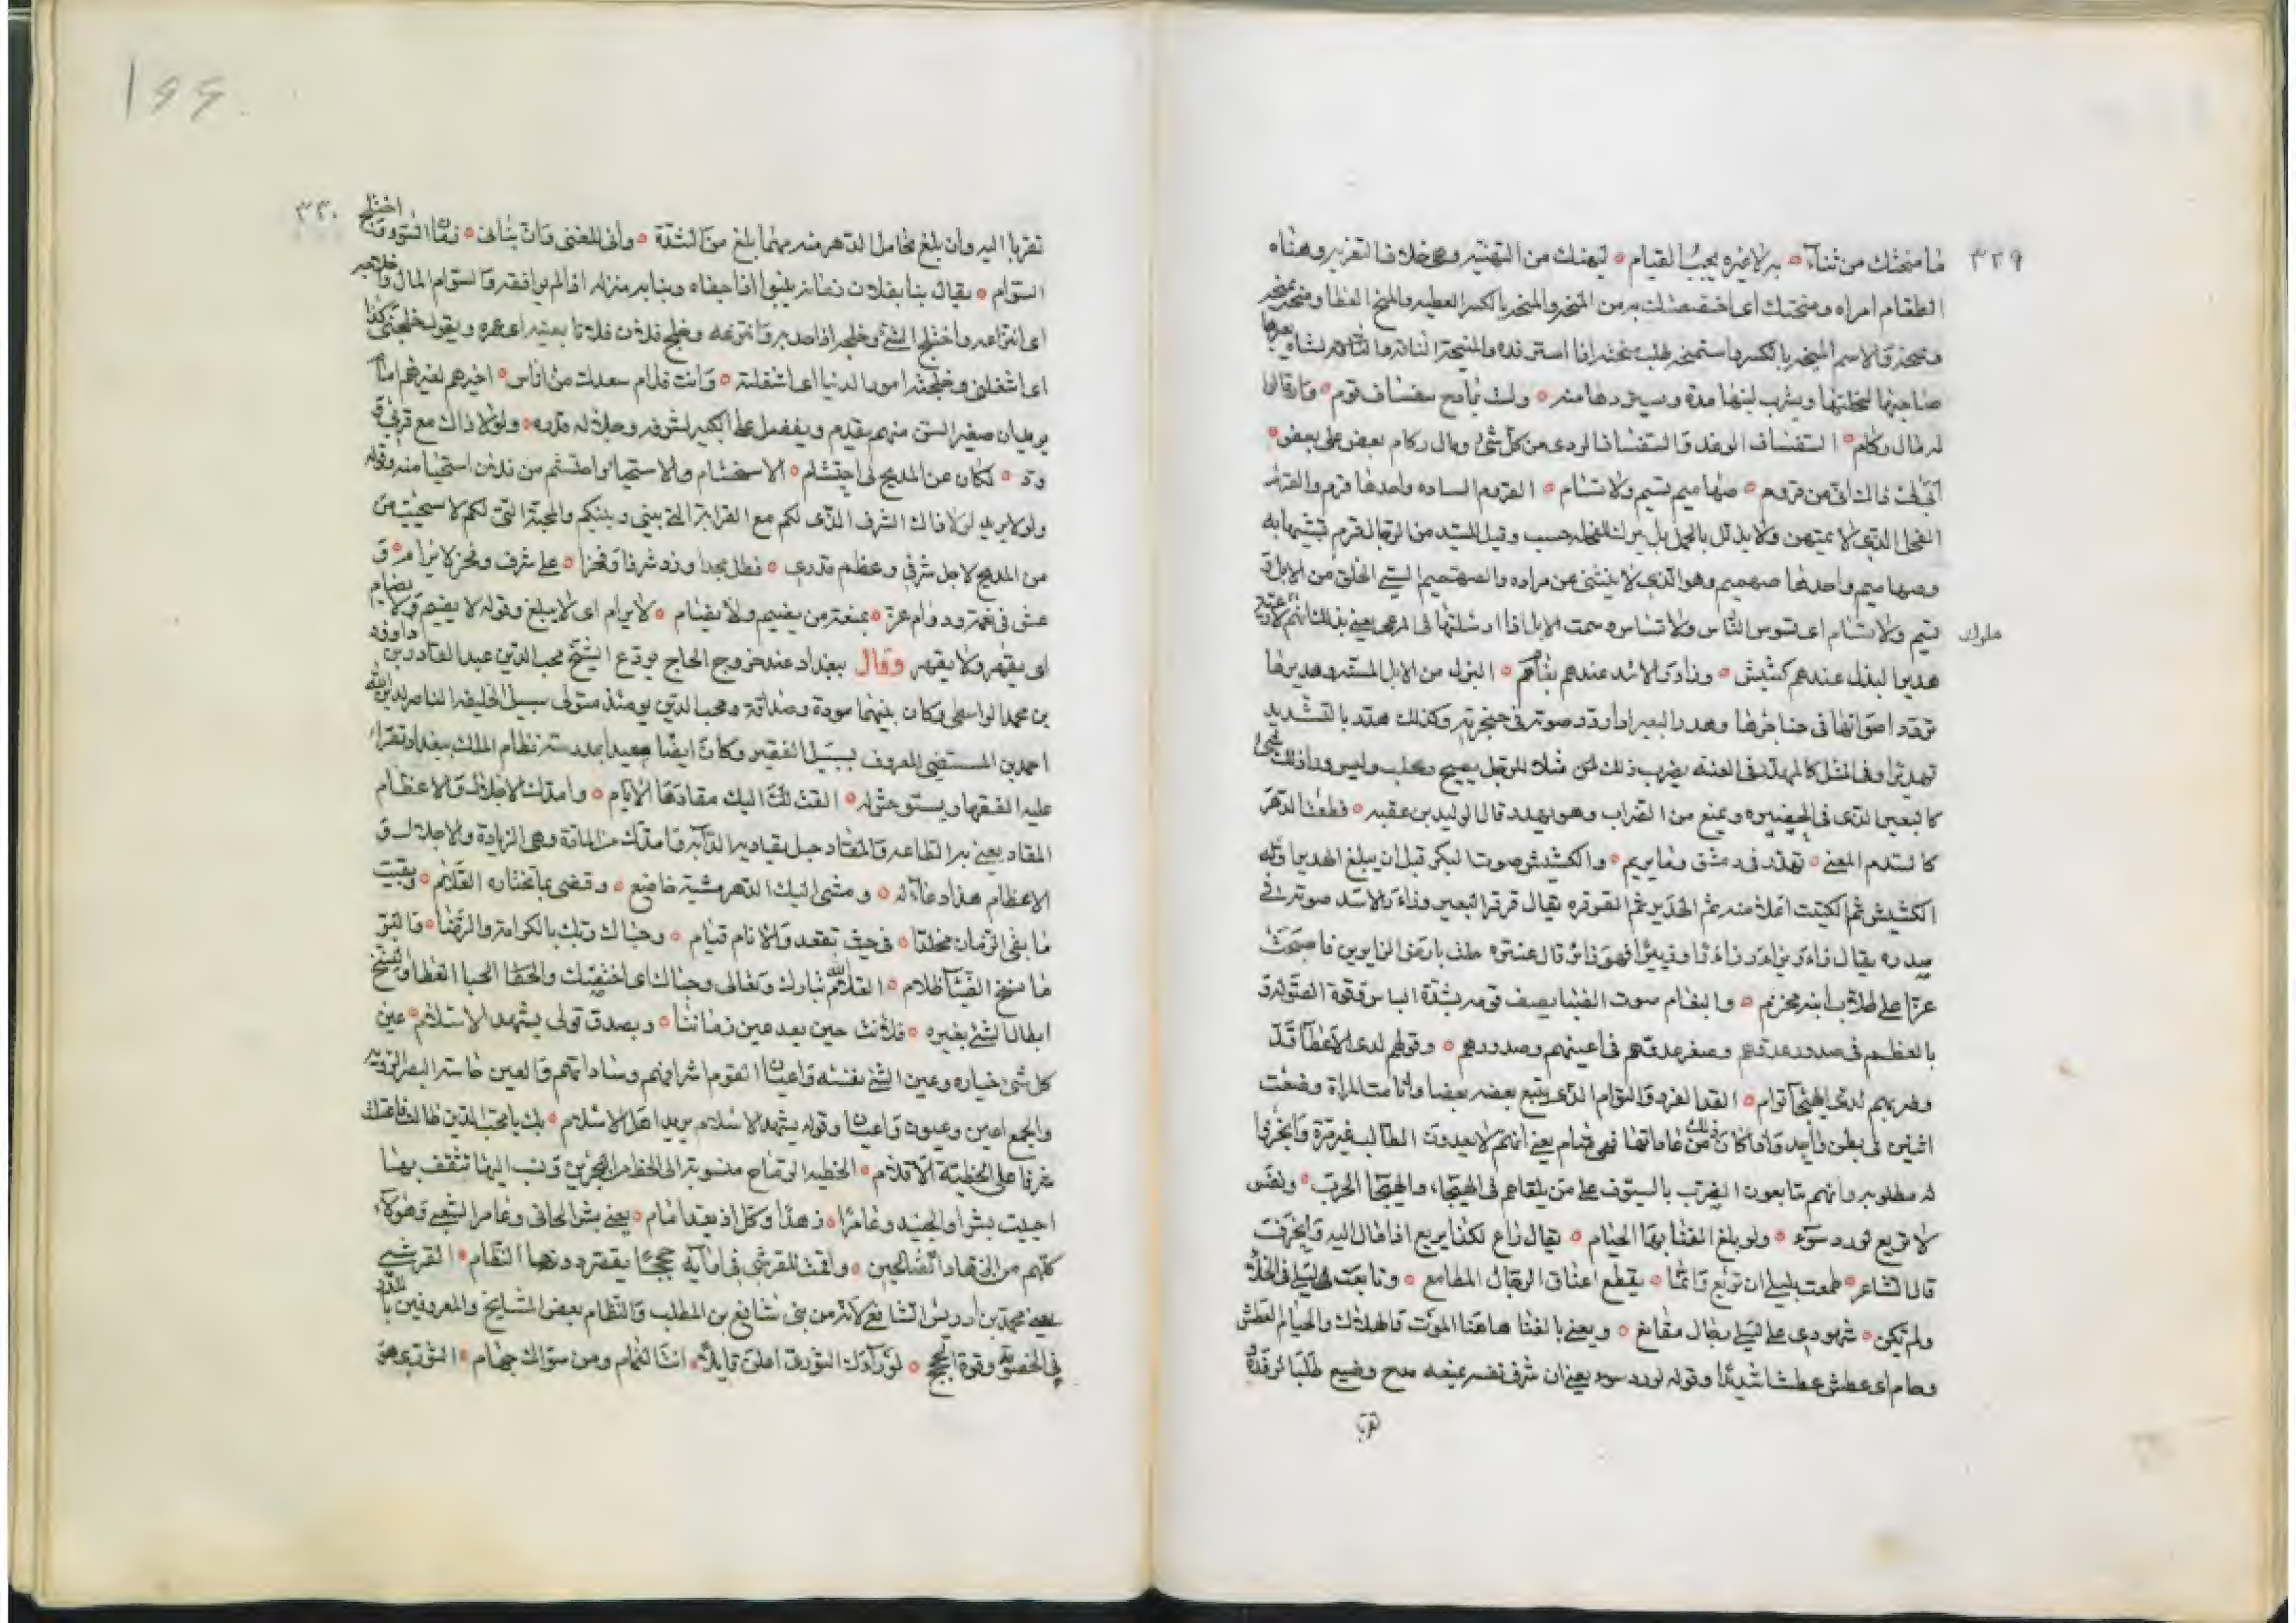 ٣٢٩
ما منحتك من ثناء به لا غيره يجب القيام ليهنك من التهنيه وهي خلاف التعزيه وهناه
الطعام امراه ومنحتك اى اختصصتك به من المنحه والمنحه بالكسر العطيه والمنح العطا ومنحه يمنحه
صاحبها ليحلبها ويشرب لبنها مدة ويردها منه ولست بمادح سفساف قوم وان قالوا
له مال ركام السفساف الوغد والسفساف الردى من كل شئ ومال ركام بعض على بعض
ابى لى ذاك انى من قروم صهاميم تسيم ولا تسام القروم الساده واحدها قرم والقرم
الفحل الذى لا يمتهن ولا يذلل بالحمل بل يترك للفحله حسب وقيل للسيد من الرجال قرم تشبيها به
وصهاميم واحدها صهميم وهو الذى لا ينثنى عن مراده والصهميم السيئ الخلق من الابل
تسيم ولا تسام اى تسوس الناس ولا تساس سمت الابل اذا ارسلتها فى المرعى يعنى بذلك انهم لا رعية
ملوك
هدير البزل عندهم كشيش وزار الاسد عندهم بغام البزل من الابل المسنه وهديرها
تردد اصواتها فى حناجرها وهدر البعير اذا ردد صوته فى حنجرته وكذلك هدر بالتشديد
تهديرا وفى المثل كالمهدر فى العنه يضرب ذلك مثلا للرجل يصيح ويجلب وليس وراء ذلك شئ
كالبعير الذى فى الحضيره ويمنع من الضراب وهو يهدر قال الوليد بن عقبه قطعت الدهر
كالسدم المعنى تهدر فى دمشق وما تريم والكشيش صوت البكر قبل ان يبلغ الهدير اوله
الكشيش ثم الكتيت اعلا منه ثم الهدير ثم القرقره يقال قرقر البعير وزار الاسد صوته فى
صدره يقال زار يزار زارا وزئيرا فهو زائر قال عنتره حلت بارض الزايرين فاصبحت
عسرا على طلابك ابنة مخرم والبغام صوت الضبا يصف قومه بشدة الباس وقوة الصوله
بالعظم فى صدور عدوهم وصغر عدوهم فى اعينهم وصدورهم وقولهم لدى الاعطا فذ
وضربهم لدى الهيجا توام الفذ الفرد والتوام الذى يتبع بعضه بعضا واتامت المراة وضعت
اثنين فى بطن واحد واذا كان ذلك من عاداتها فهى متام يعنى انهم لا يعدون الطالب غير مرة وانجزوا
له مطلوبه وانهم يتابعون الضرب بالسيوف على من يلقاهم فى الهيجاء والهيجا الحرب ونفسى
لا تريع لورد سوء ولو بلغ الفنا بها الحيام يقال راع لكذا يريع اذا مال اليه وانحرفت
قال الشاعر طمعت بليلى ان تريع وانما تقطع اعناق الرجال المطامع وتابعت ليلى فى الخلاء
ولم تكن شهودى على ليلى رجال مقانع ويعنى بالفنا هاهنا الموت والهلاك والحيام العطش
وحام اى عطش عطشا شديدا وقوله لورد سوء يعنى ان شرف نفسه يمنعه مدح وضيع طلبا لرفده
تقربا
٣٣٠
تقربا اليه وان بلغ تحامل الدهر منه مهما بلغ من الشدة وانى للمغنى وان بنانى زمان السوء واختلج
السوام يقال بنا بفلان زمانه ينبوا اذا جفاه وبنا به منزله اذا لم يوافقه والسوام المال واختلاجه
اى انتزاعه واختلج الشئ وخلجه اذا جذبه وانتزعه وخلج فلان فلانا بعينه اى غمزه ويقول خلجنى كذا
اى اشغلنى وخلجته امور الدنيا اى اشغلته وانت فدام سعدك من اناس اخيرهم لغيرهم امام
يريد ان صغير السن منهم يقدم ويفضل على الكبير لشرفه وجلاله قدره ولولا ذاك مع قربى و
ود لكان عن المديح لى احتشام الاحتشام والاستحيا واحتشم من فلان استحيا منه وقوله
ولولا يريد لولا ذاك الشرف الذى لكم مع القرابة التى بينى وبينكم والمحبة التى لكم لاستحييت من
من المديح لاجل شرفى وعظم قدرى فطل مجدا وزد شرفا وفخرا على شرف وفخر لا يرام و
عش فى نعمة ودوام عز بمنعة من يضيم ولا يضام لا يرام اى لا يبلغ وقوله لا يضيم ولا يضام
اى يقهر ولا يقهر وقال ببغداد عند خروج الحاج يودع الشيخ محب الدين عبد القادر بن داود
بن محمد الواسطى وكان بينهما مودة وصداقة ومحب الدين يومئذ متولى سبيل الخليفه الناصر لدين الله
احمد بن المستضى المعروف بسبيل الفقير وكان ايضا معيدا بمدرسة نظام الملك ببغداد تقرا
عليه الفقها ويستوحش له القت لك اليك مقادها الايام وامدك الاجلال والاعظام
المقاد يعنى به الطاعه والمقاد حبل يقاد به الدابه وامدك من المادة وهى الزيادة والاجلال و
الاعظام هذا دعا له ومشى اليك الدهر مشية خاضع وقضى بما تختاره العلام وبقيت
ما بقى الزمان مخلدا فى حيث تقعد والانام قيام وحباك ربك بالكرامة والرضا والفوز
ما نسخ الضياء ظلام العلام الله تبارك وتعالى وحباك اى اختصك واعطا الحبا العطا والنسخ
ابطال الشئ بغيره فلانت حين يعد عين زماننا وبصدق قولى يشهد الاسلام عين
كل شئ خياره وعين الشئ نفسه واعيان القوم اشرافهم وساداتهم والعين حاسة البصر الرويه
والجمع اعين وعيون واعيان وقوله يشهد الاسلام يريد اهل الاسلام بك يا محب الدين طالت فاعتلت
شرفا على الخطية الاقلام الخطيه الرماح منسوبة الى الخط من البحرين وتنسب اليها تثقف بها
احييت بشرا والجنيد وعامرا زهدا وكل اذ يعد امام يعنى بشر الحافى وعامر الشعبى وهؤلاء
كلهم من الزهاد الصالحين واقمت للقرشى فى ايامه حججا يقصر دونها النظام القرشى
يعنى محمد بن ادريس الشافعى لانه من بنى شافع بن المطلب والنظام بعض المشايخ والمعروفين بالجدل
فى الخصومة وقوة الحجج لو رآك الثورى اعلن قايلا انت الغمام ومن سواك جهام الثورى هو
١٦٦